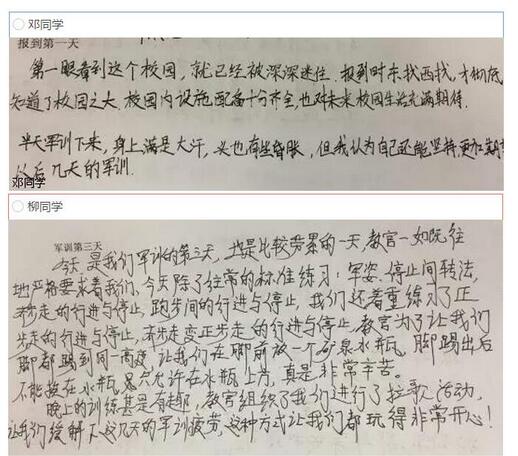 邓同学
报到第一天
第一眼看到这个校园，就已经被深深迷住．报到时东找西找，才彻底
知道了校园之大．校园内设施配备十分齐全，也对未来校园生活充满期待．
半天军训下来，身上满是大汗，头也有些昏胀，但我认为自己还能坚持，更加期待
以后几天的军训．
邓同学
柳同学
军训第三天
今天是我们军训的第三天，也是比较劳累的一天，教官一如既往
地严格要求着我们．今天除了往常的标准练习：军姿、停止间转法，
齐步走的行进与停止，跑步间的行进与停止，我们还着重练习了正
步走的行进与停止，齐步走变正步走的行进与停止．教官为了让我们
脚都踢到同一高度，让我们在脚前放一个矿泉水瓶，脚踢出后
不能放在水瓶只允许在水瓶上方，真是非常辛苦。
晚上的训练甚是有趣，教官组织了我们进行了拉歌活动，
让我们缓解了这几天的军训疲劳，这种方式让我们都玩得非常开心！